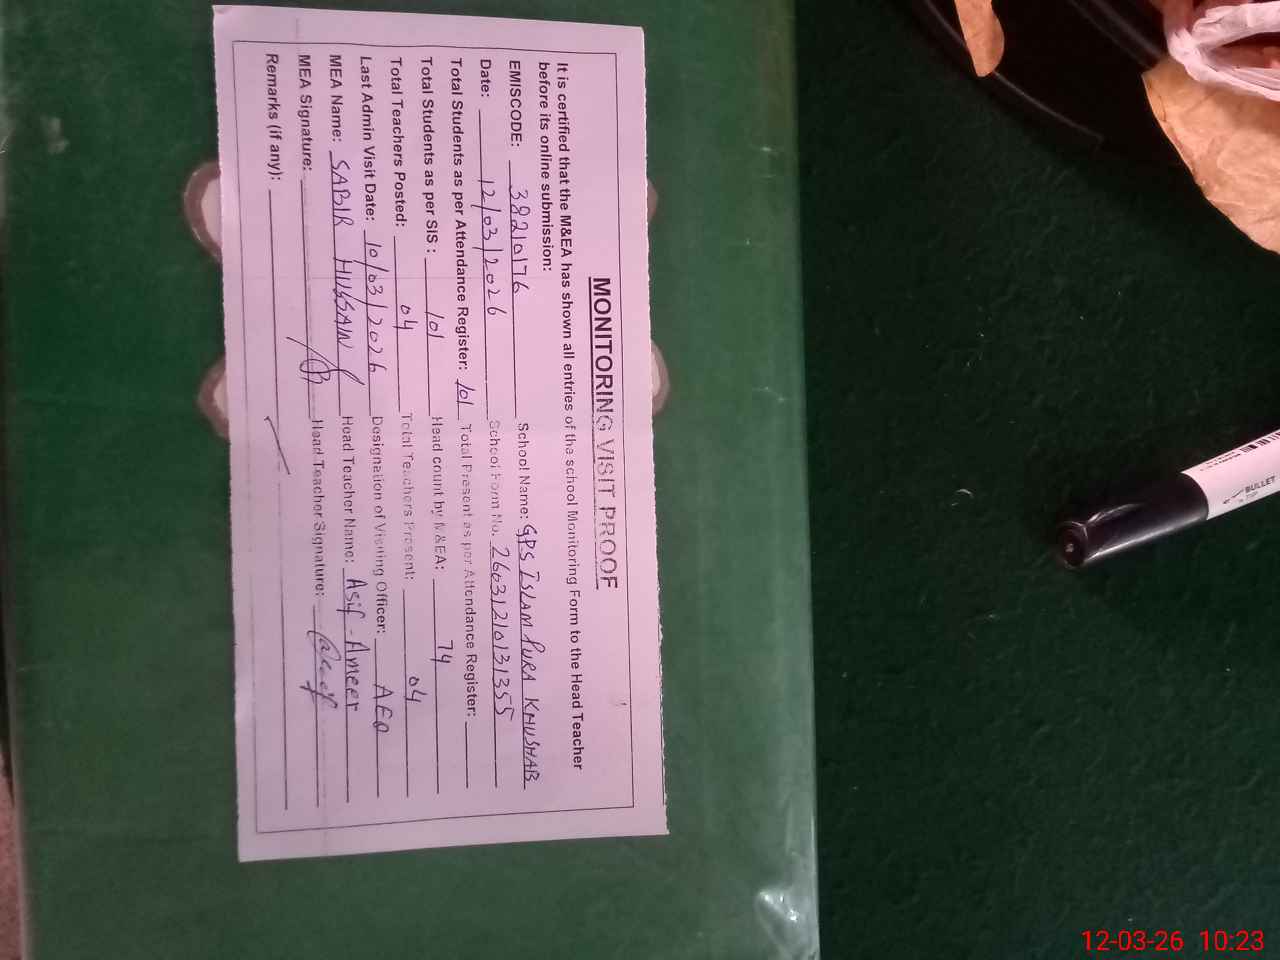 MONITORING VISIT PROOF
It is certified that the M&EA has shown all entries of the school Monitoring Form to the Head Teacher
before its online submission:
EMISCODE: 38210176 School Name: GPS ISLAM PURA KHUSHAB
Date: 12/03/2026 School Form No. 26031210131355
Total Students as per Attendance Register: 101 Total Present as per Attendance Register:
Total Students as per SIS : 101 Head count by M&EA: 74
Total Teachers Posted: 04 Total Teachers Present: 04
Last Admin Visit Date: 10/03/2026 Designation of Visiting Officer: AEO
MEA Name: SABIR HUSSAIN Head Teacher Name: Asif-Ameer
MEA Signature: Head Teacher Signature:
Remarks (if any):
BULLET
12-03-26 10:23